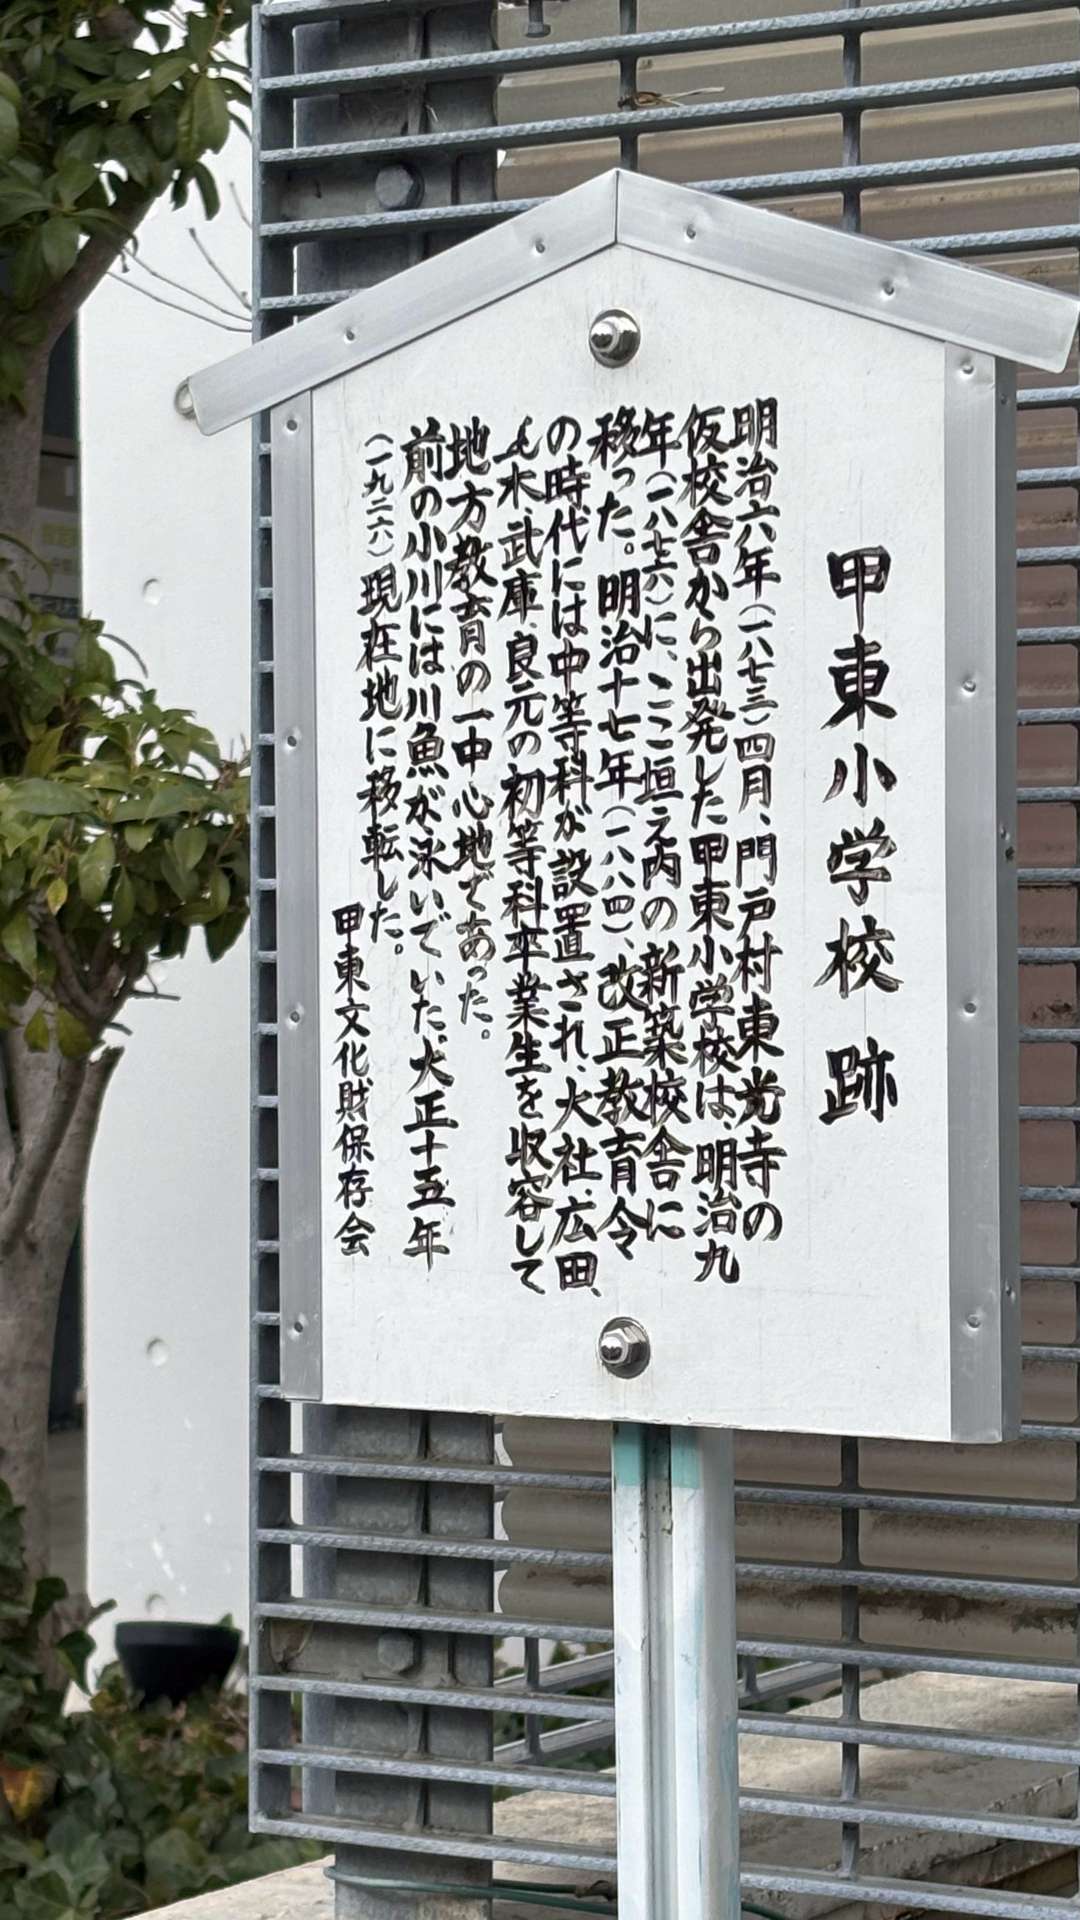 甲東小学校跡
明治六年(一八七三)四月、門戸村東光寺の
仮校舎から出発した甲東小学校は、明治九
年(一八七六)に、ここ垣之内の新築校舎に
移った。明治十七年(一八八四)、改正教育令
の時代には中等科が設置され、大社、広田、
瓦木、武庫、良元の初等科卒業生を収容して
地方教育の一中心地であった。
前の小川には川魚が泳いでいた。大正十五年
(一九二六)現在地に移転した。
甲東文化財保存会